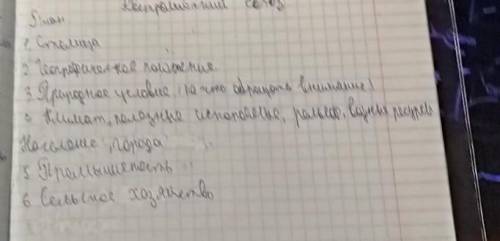 План
1. Столица
2 Географическое положение
3. Природное условие (на что обращать внимание)
Климат, полезные ископаемые, рельеф, водные ресурсы
Население, города
5. Промышленость
6. Сельское хозяйство